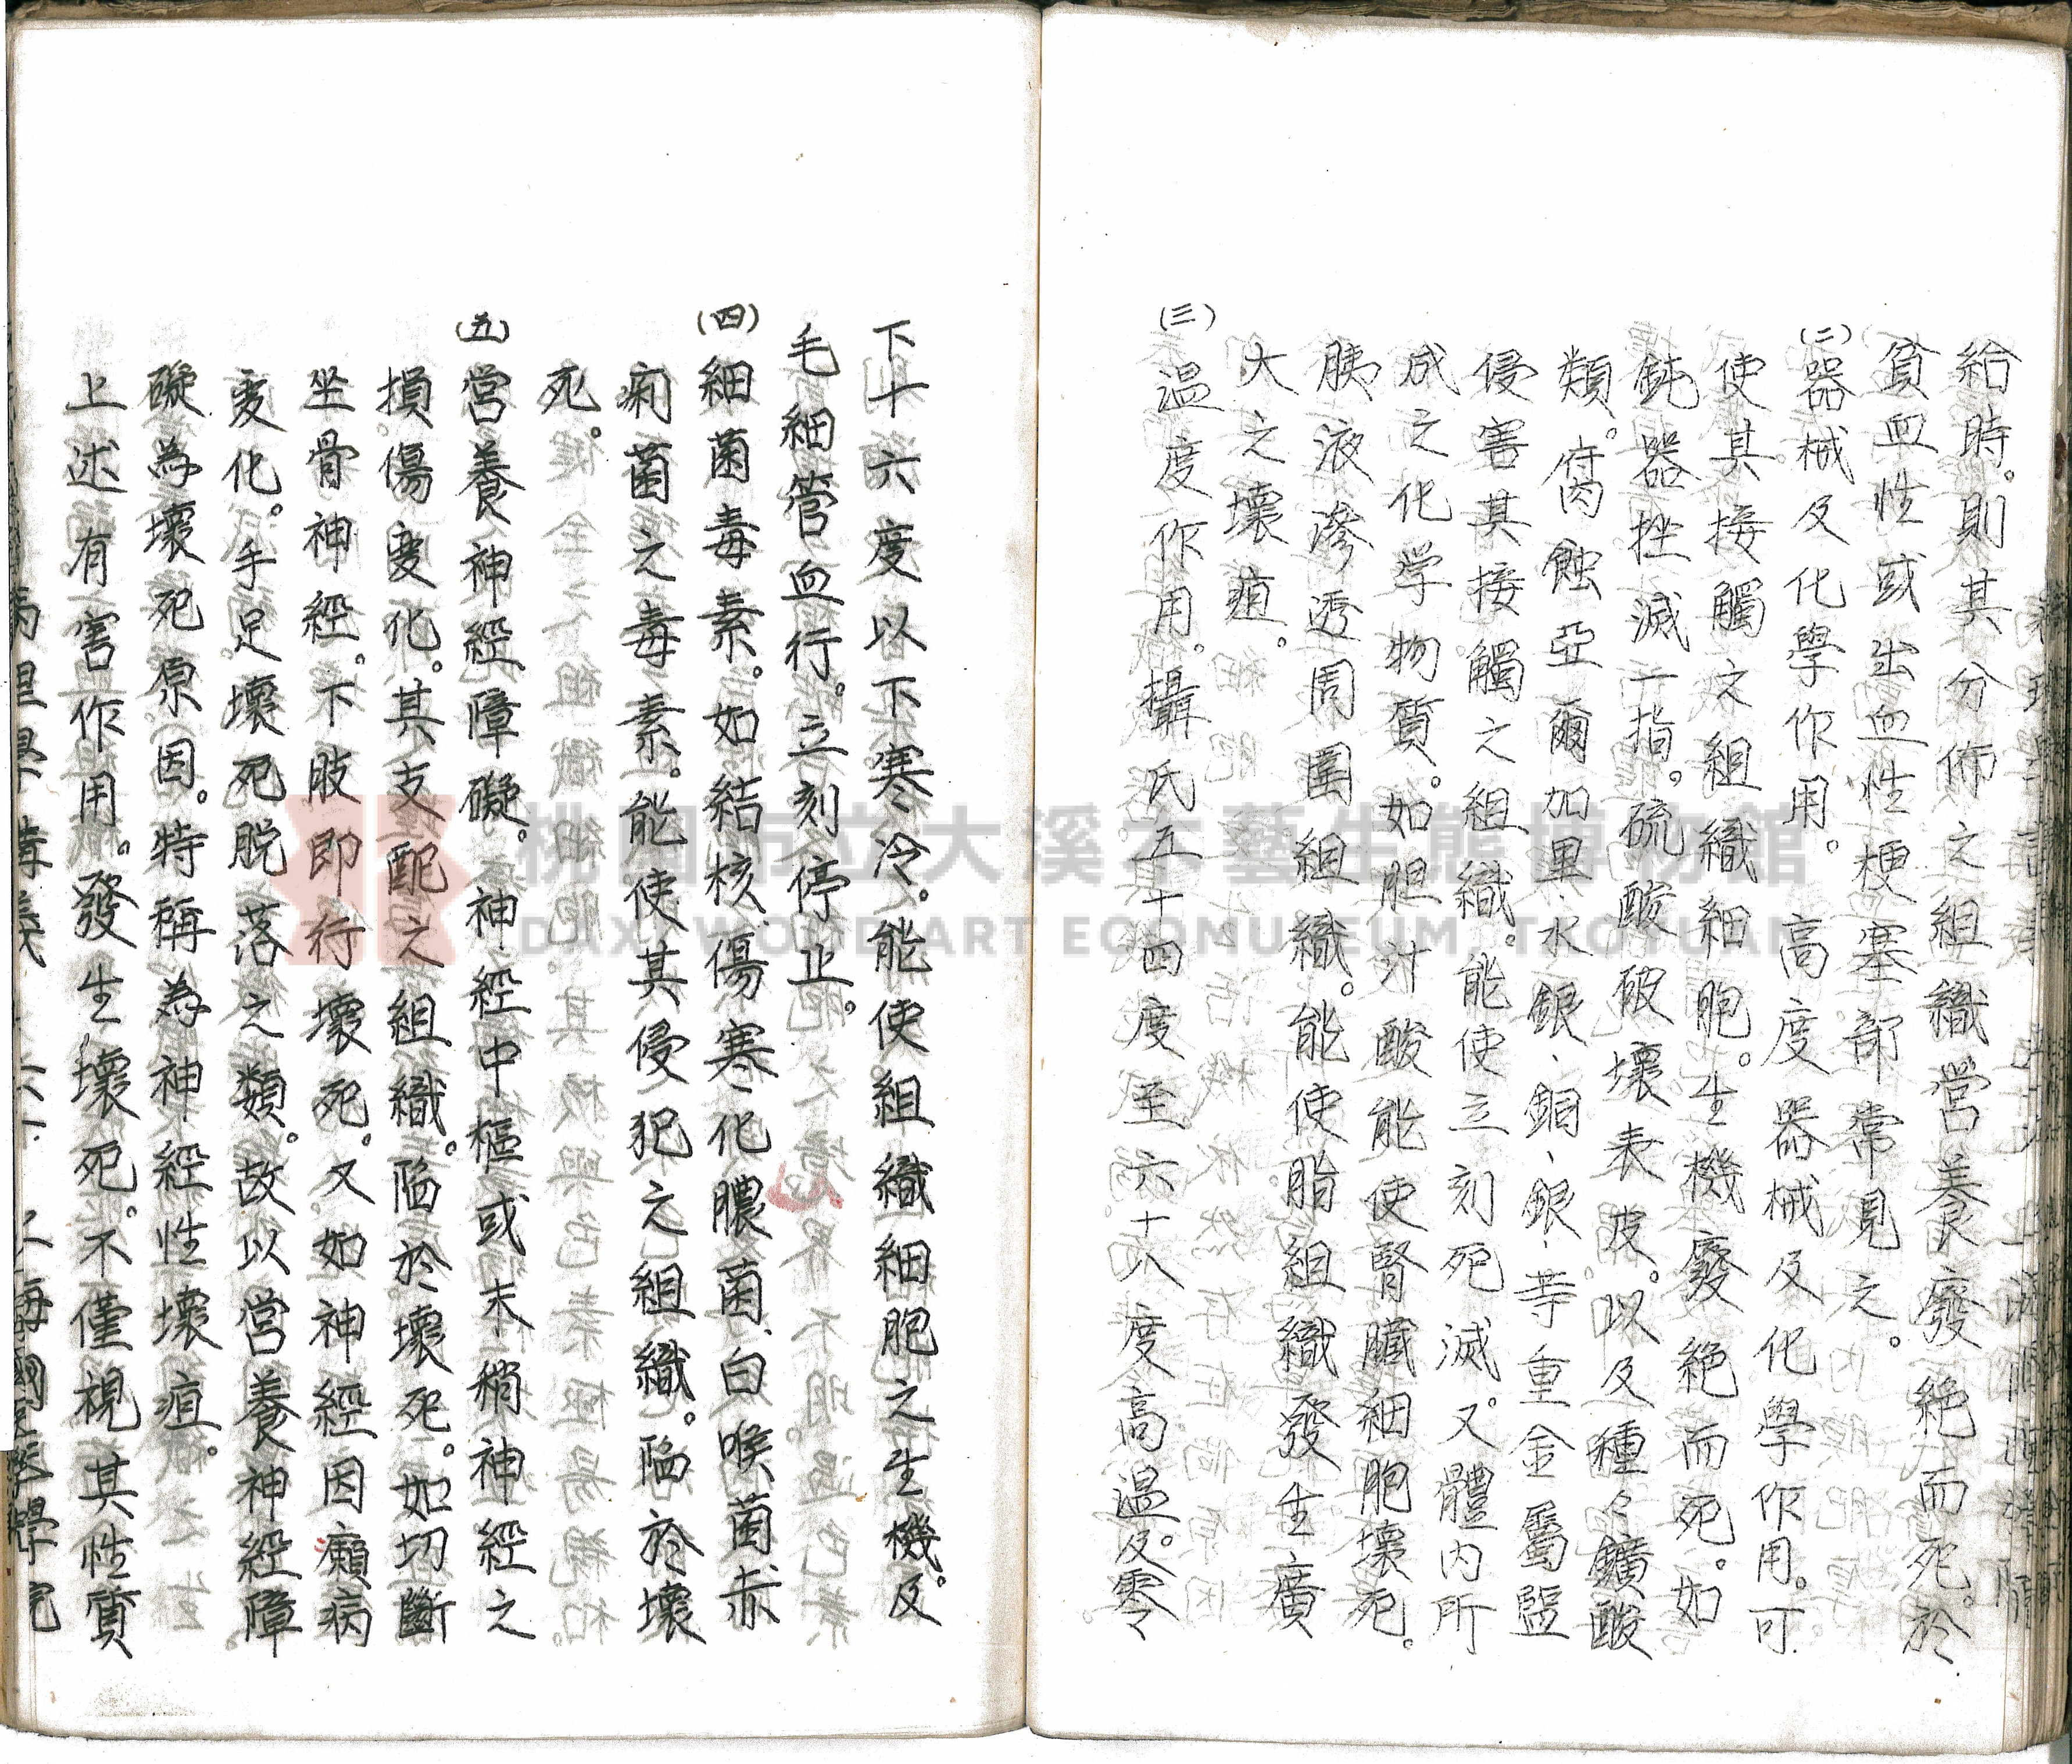 給時。則其分佈之組織営养廢絕而死。於
貧血性或出血性梗塞部常見之。
(二)器械及化學作用。高度器械及化學作用。可
使其接觸之組織細胞。生機廢絕而死。如
鈍器挫滅一指。硫酸破壞表皮。以及種々鑛酸
類。腐蝕亞爾加里、水銀、銅、銀、等重金屬盬
侵害其接觸之組織。能使立刻死滅。又體內所
成之化学物質。如胆汁酸能使腎臟細胞壞死。
胰液滲透周圍組織。能使脂組織發生廣
大之壞疽。
(三)溫度作用。攝氏五十四度至六十八度高溫。及零
下十六度以下寒冷。能使組織細胞之生機。及
毛細管血行。立刻停止。
(四)細菌毒素。如結核傷寒化膿菌、白喉菌赤
痢菌之毒素。能使其侵犯之組織。陷於壞
死。
(五)営養神經障礙。神經中樞或末稍神經之
損傷変化。其支配之組織。陷於壞死。如切斷
坐骨神經。下肢即行壞死。又如神經因癩病
変化。手足壞死脫落之類。故以営養神經障
礙為壞死原因。特稱為神經性壞疽。
上述有害作用。發生壞死。不僅視其性質
桃園市立大溪木藝生態博物館
DAXI WOOD ART ECOMUSEUM, TAOYUAN